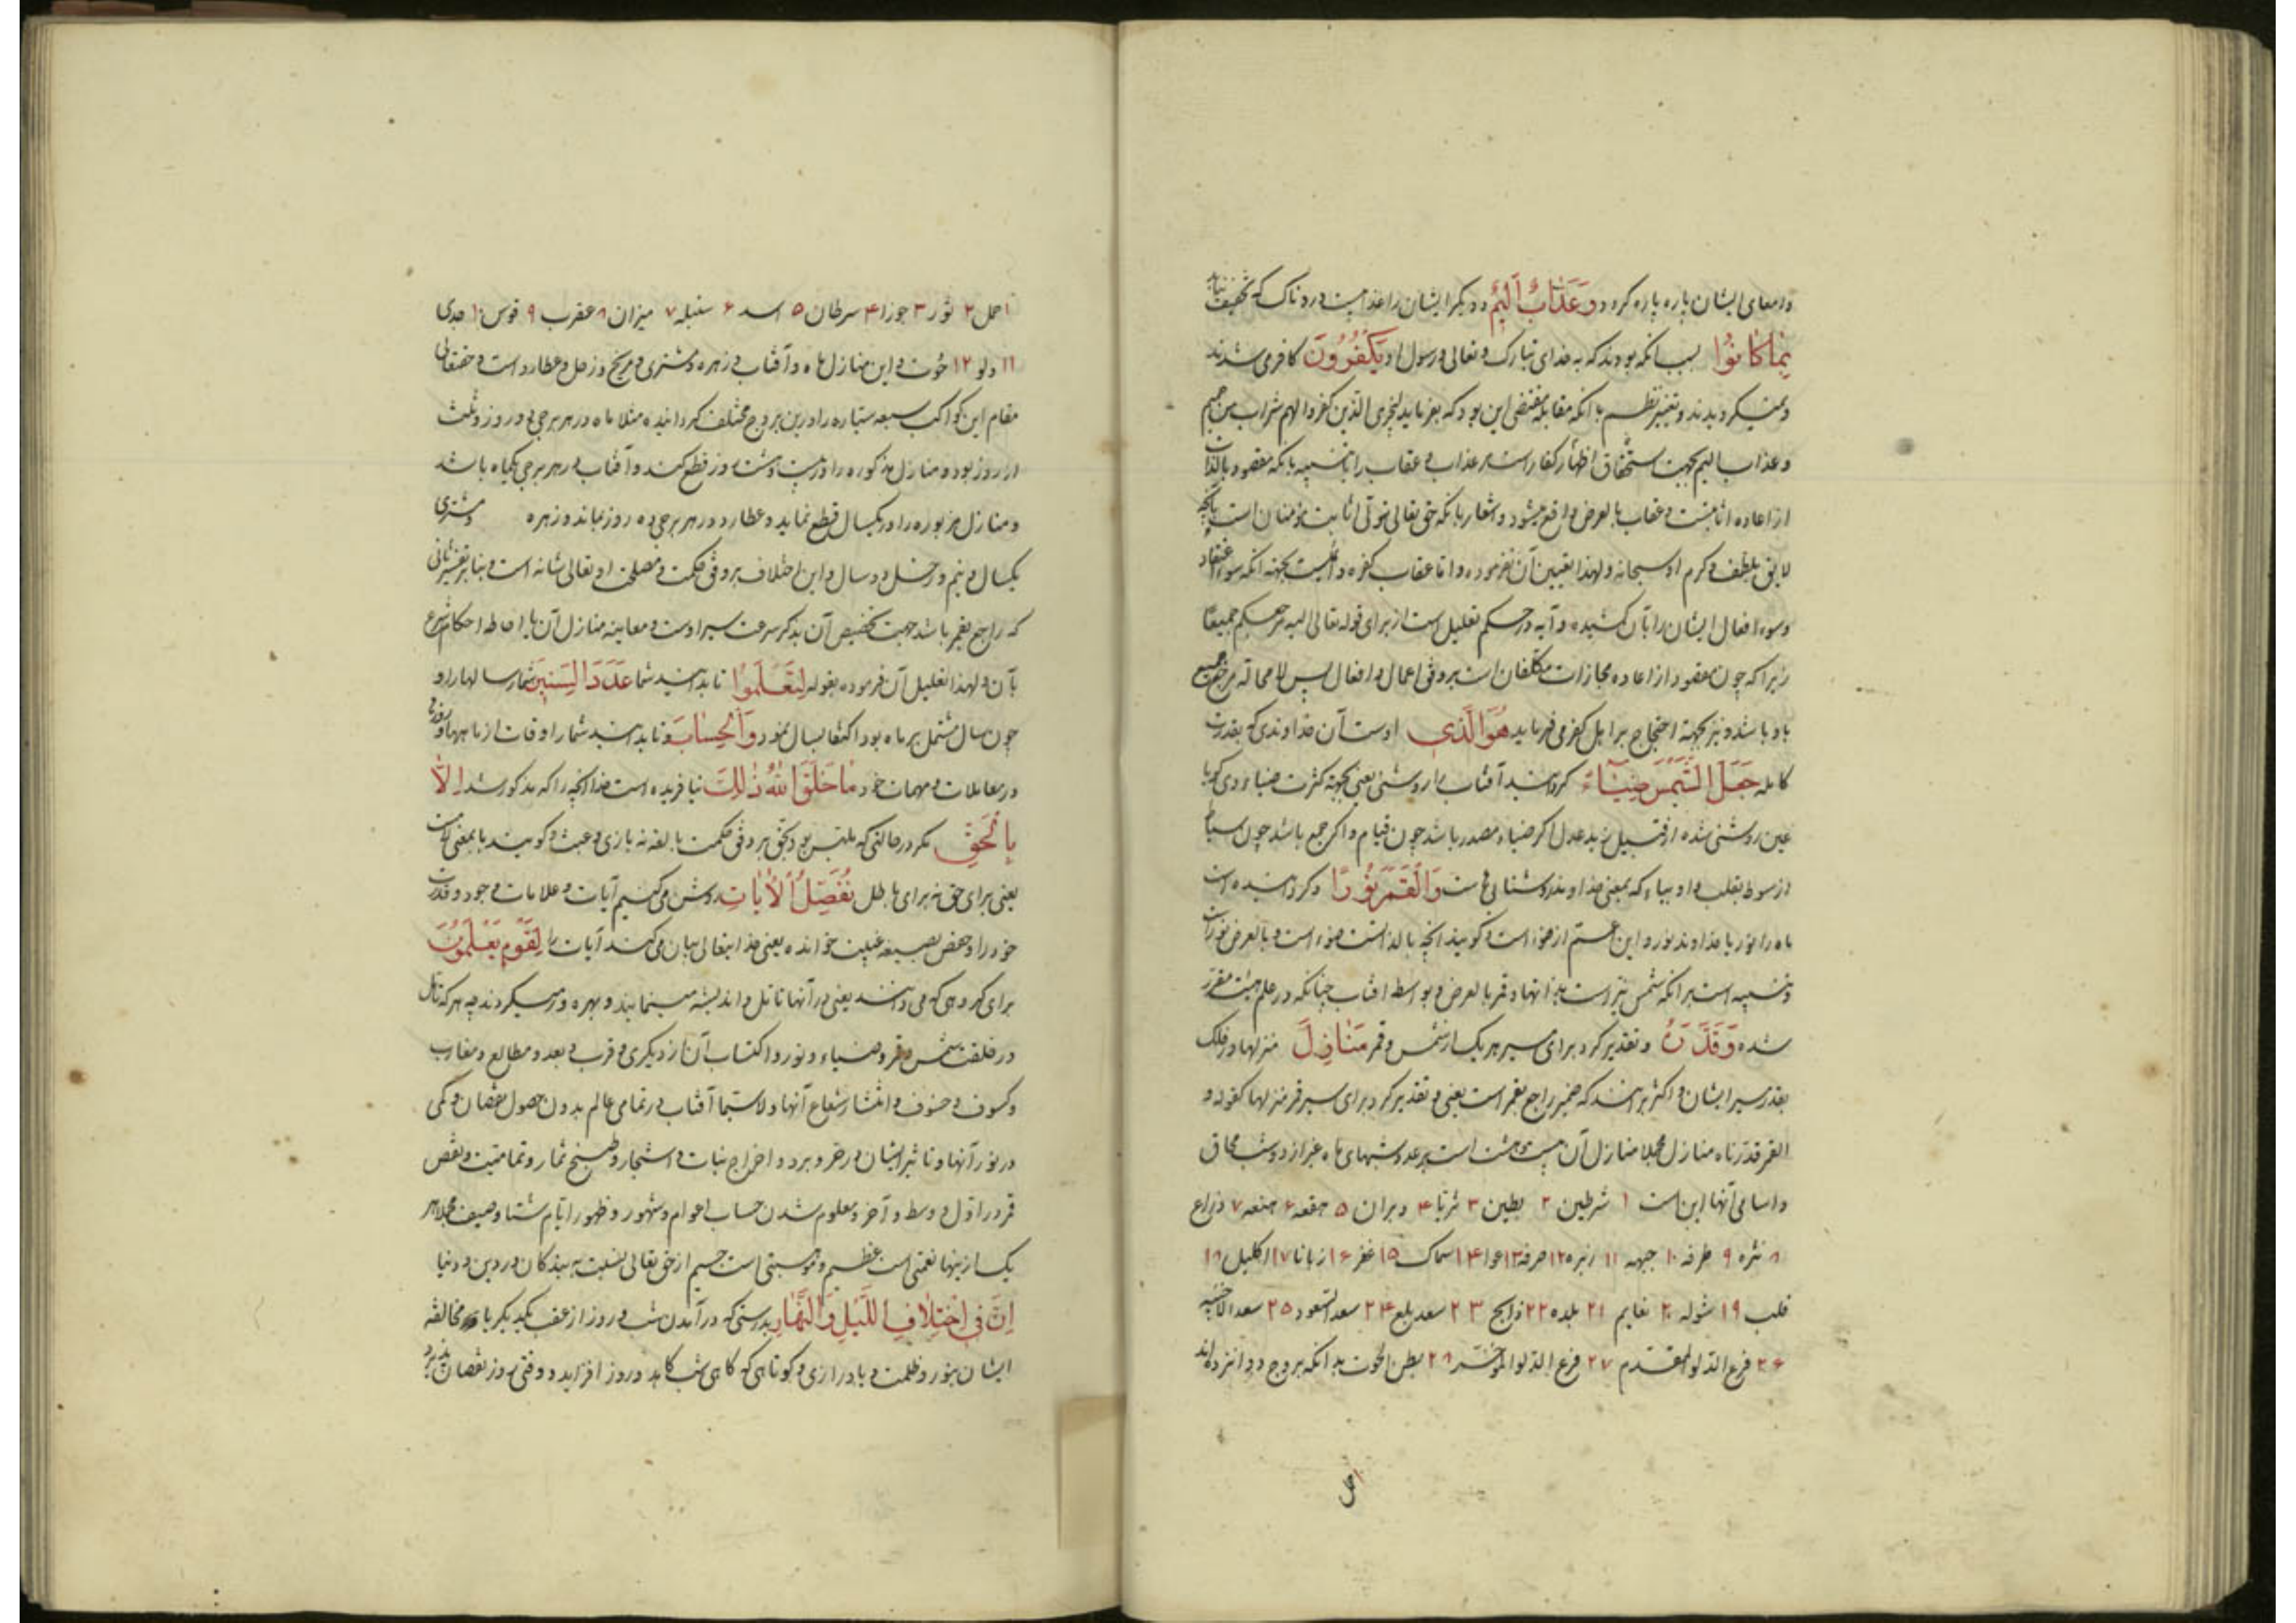 وامعای ایشان پاره پاره کردد وَعَذَابٌ اَلِیمٌ ودیکر ایشان را عذابیست دردناک که تخفیف نیابد
بِمَا کَانُوا بسبب انکه بودند که به خدای تبارک و تعالی و رسول او یَکْفُرُونَ کافر می شدند
و تغییر نظم با انکه مقابله مقتضی این بود که بفرماید لیجزی الذین کفروا لهم شراب من حمیم
وعذاب الیم بجهت استحقاق اظهار کفار است مر عذاب و عقاب را با تنبیه بانکه مقصود بالذات
از اعاده اثابتست و عقاب بالعرض واقع میشود و اشعار بانکه حق تعالی متولی اثابت مؤمنان است بآنچه
لایق بلطف و کرم او سبحانه ولهذا تعیین آن نفرموده واما عقاب کفره بجهته انکه سوء اعتقاد
وسوء افعال ایشان را بآن کشیده و آیه در حکم تعلیل است از برای قوله تعالی الیه مرجعکم جمیعًا
زیرا که چون مقصود از اعاده مجازات مکلفان است بر وفق اعمال و افعال پس لا محاله مرجع جمیع
باو باشد و نیز بجهته احتجاج بر اهل کفر می فرماید هُوَ الَّذِی اوست آن خداوندی که بقدرت
کامله جَعَلَ الشَّمْسَ ضِیَآءً کردانید آفتاب را روشنی یعنی بجهته کثرت ضیاء وی کویا
عین روشنی شده از قبیل زید عدل اکر ضیاء مصدر باشد چون قیام و اکر جمع باشد چون سیاط
از سوط بقلب واو بیاء که بمعنی خداوند روشنائی هاست وَالْقَمَرَ نُورًا و کردانیده است
ماه را نور یا خداوند نور و این اعم از ضوء است و کویند انچه بالذاتست ضوء است و بالعرض نور است
و تنبیه است برانکه شمس نیر است بذاتها و قمر بالعرض و بواسطه افتاب چنانکه در علم هیئت مقرر
شده وَقَدَّرَهُ و تقدیر کرد برای سیر هر یک از شمس و قمر مَنَازِلَ منزلها در فلک
بقدر سیر ایشان و اکثر برانند که ضمیر راجع بقمر است یعنی و تقدیر کرد برای سیر قمر منزلها کقوله و
القمر قدرناه منازل مجملا منازل آن بیست و هشت است بر عدد شبهای ماه غیر از دو شب محاق
واسامی آنها این است ۱ شرطین ۲ بطین ۳ ثریا ۴ دبران ۵ هقعه ۶ هنعه ۷ ذراع
۸ نثره ۹ طرفه ۱۰ جبهه ۱۱ زبره ۱۲ صرفه ۱۳ عوا ۱۴ سماک ۱۵ غفر ۱۶ زبانا ۱۷ اکلیل ۱۸
قلب ۱۹ شوله ۲۰ نعایم ۲۱ بلده ۲۲ ذابح ۲۳ سعد بلع ۲۴ سعد السعود ۲۵ سعد الاخبیه
۲۶ فرع الدلو المقدم ۲۷ فرع الدلو المؤخر ۲۸ بطن الحوت بدانکه بروج دوانزده اند
۱ حمل
۱ حمل ۲ ثور ۳ جوزا ۴ سرطان ۵ اسد ۶ سنبله ۷ میزان ۸ عقرب ۹ قوس ۱۰ جدی
۱۱ دلو ۱۲ حُوت و این منازل ماه و آفتاب و زهره و مشتری و مریخ و زحل و عطارد است و حقتعالی
مقام این کواکب سبعه سیاره را درین بروج مختلف کردانیده مثلا ماه در هر برجی دو روز و ثلث
از روز بود و منازل مذکوره را در بیست و هشت روز قطع کند و آفتاب در هر برجی یکماه باشد
و منازل مزبوره را در یکسال قطع نماید و عطارد در هر برجی ده روز بماند و زهره و مشتری
یکسال و نیم و زحل دو سال و این اختلاف بر وفق حکمت و مصلحت او تعالی شانه است و بنابر تفسیر ثانی
که راجع بقمر باشد جهت تخصیص آن بذکر سرعت سیر اوست و معاینه منازل آن با احاطه احکام شرع
بآن و لهذا تعلیل آن فرموده بقوله لِتَعْلَمُوا تا بدانید شما عَدَدَ السِّنِینَ شمار سالها را و
چون سال مشتمل بر ماه بود اکتفا بسال نمود وَالْحِسَابَ و تا بدانید شمار اوقات از ماهها و روزها
در معاملات و مهمات خود مَا خَلَقَ اللهُ ذٰلِکَ نیافریده است خدا انچه را که مذکور شد اِلَّا
بِالْحَقِّ مکر در حالتی که ملتبس بود بحق بر وفق حکمت بالغه نه بازی و عبث و کویند با بمعنی لامست
یعنی برای حق نه برای باطل نُفَصِّلُ الْآیَاتِ روشن می کنیم آیات و علامات وجود و قدرت
خود را و حفص بصیغه غیبت خوانده یعنی خدایتعالی بیان می کند آیات را لِقَوْمٍ یَعْلَمُونَ
برای کروهی که می دانند یعنی در آنها تامل و اندیشه مینمایند و بهره ور میکردند چه هر که تامل
در خلقت شمس و قمر و ضیاء و نور و اکتساب آن از دیکری و قرب و بعد و مطالع و مغارب
وکسوف و خسوف و انتشار شعاع آنها ولا سیما آفتاب در تمامی عالم بدون حصول نقصان و کمی
در نور آنها و تاثیر ایشان در حر و برد و اخراج نبات و اشجار و طبخ ثمار و تمامیت و نقص
قمر در اول و وسط و آخر و معلوم شدن حساب اعوام و شهور و ظهور ایام شتا و صیف مجملا هر
یک از اینها نعمتی است عظیم و موهبتی است جسیم از حق تعالی نسبت به بندکان در دین و دنیا
اِنَّ فِی اخْتِلَافِ اللَّیْلِ وَالنَّهَارِ بدرستی که در آمدن شب و روز از عقب یکدیکر یا مخالفه
ایشان بنور و ظلمت و یا درازی و کوتاهی که کاهی شب کاهد و روز افزاید و وقتی روز نقصان پذیرد